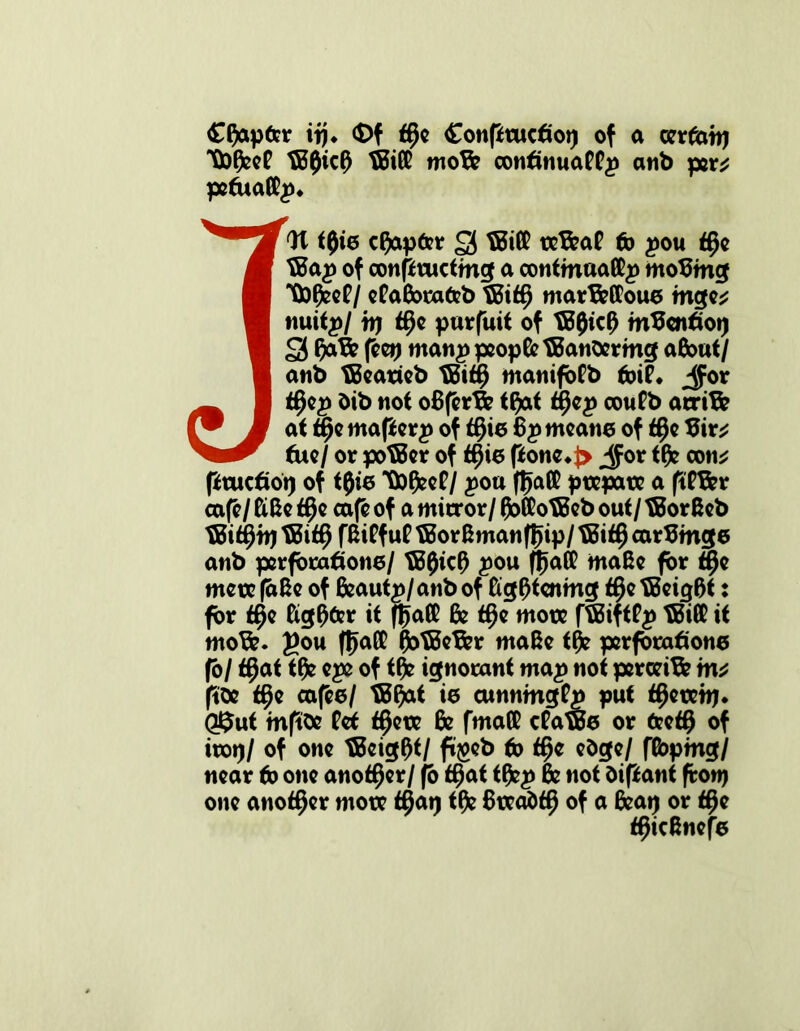 Chapter iij. Of the Construction of a certain
Wheel which will move continually and per⸗
petually.
IN this chapter I will reveal to you the
way of constructing a continually moving
wheel/ elaborated with marvellous inge⸗
nuity/ in the pursuit of which invention
I have seen many people wandering about/
and wearied with manifold toil. For
they did not observe that they could arrive
at the mastery of this by means of the vir⸗
tue/ or power of this stone. For the con⸗
struction of this wheel/ you shall prepare a silver
case/ like the case of a mirror/ hollowed out/ worked
within with skilful workmanship/ with carvings
and perforations/ which you shall make for the
mere sake of beauty/ and of lightening the weight:
for the lighter it shall be the more swiftly will it
move. You shall however make the perforations
so/ that the eye of the ignorant may not perceive in⸗
side the cases/ what is cunningly put therein.
But inside let there be small claws or teeth of
iron/ of one weight/ fixed to the edge/ sloping/
near to one another/ so that they be not distant from
one another more than the breadth of a bean or the
thickness